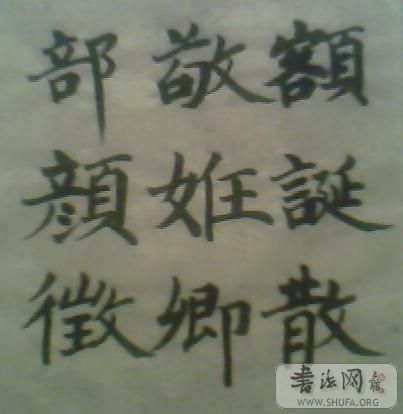 部敬額
顔姙誕
徵卿散
書法网
WWW.SHUFA.ORG